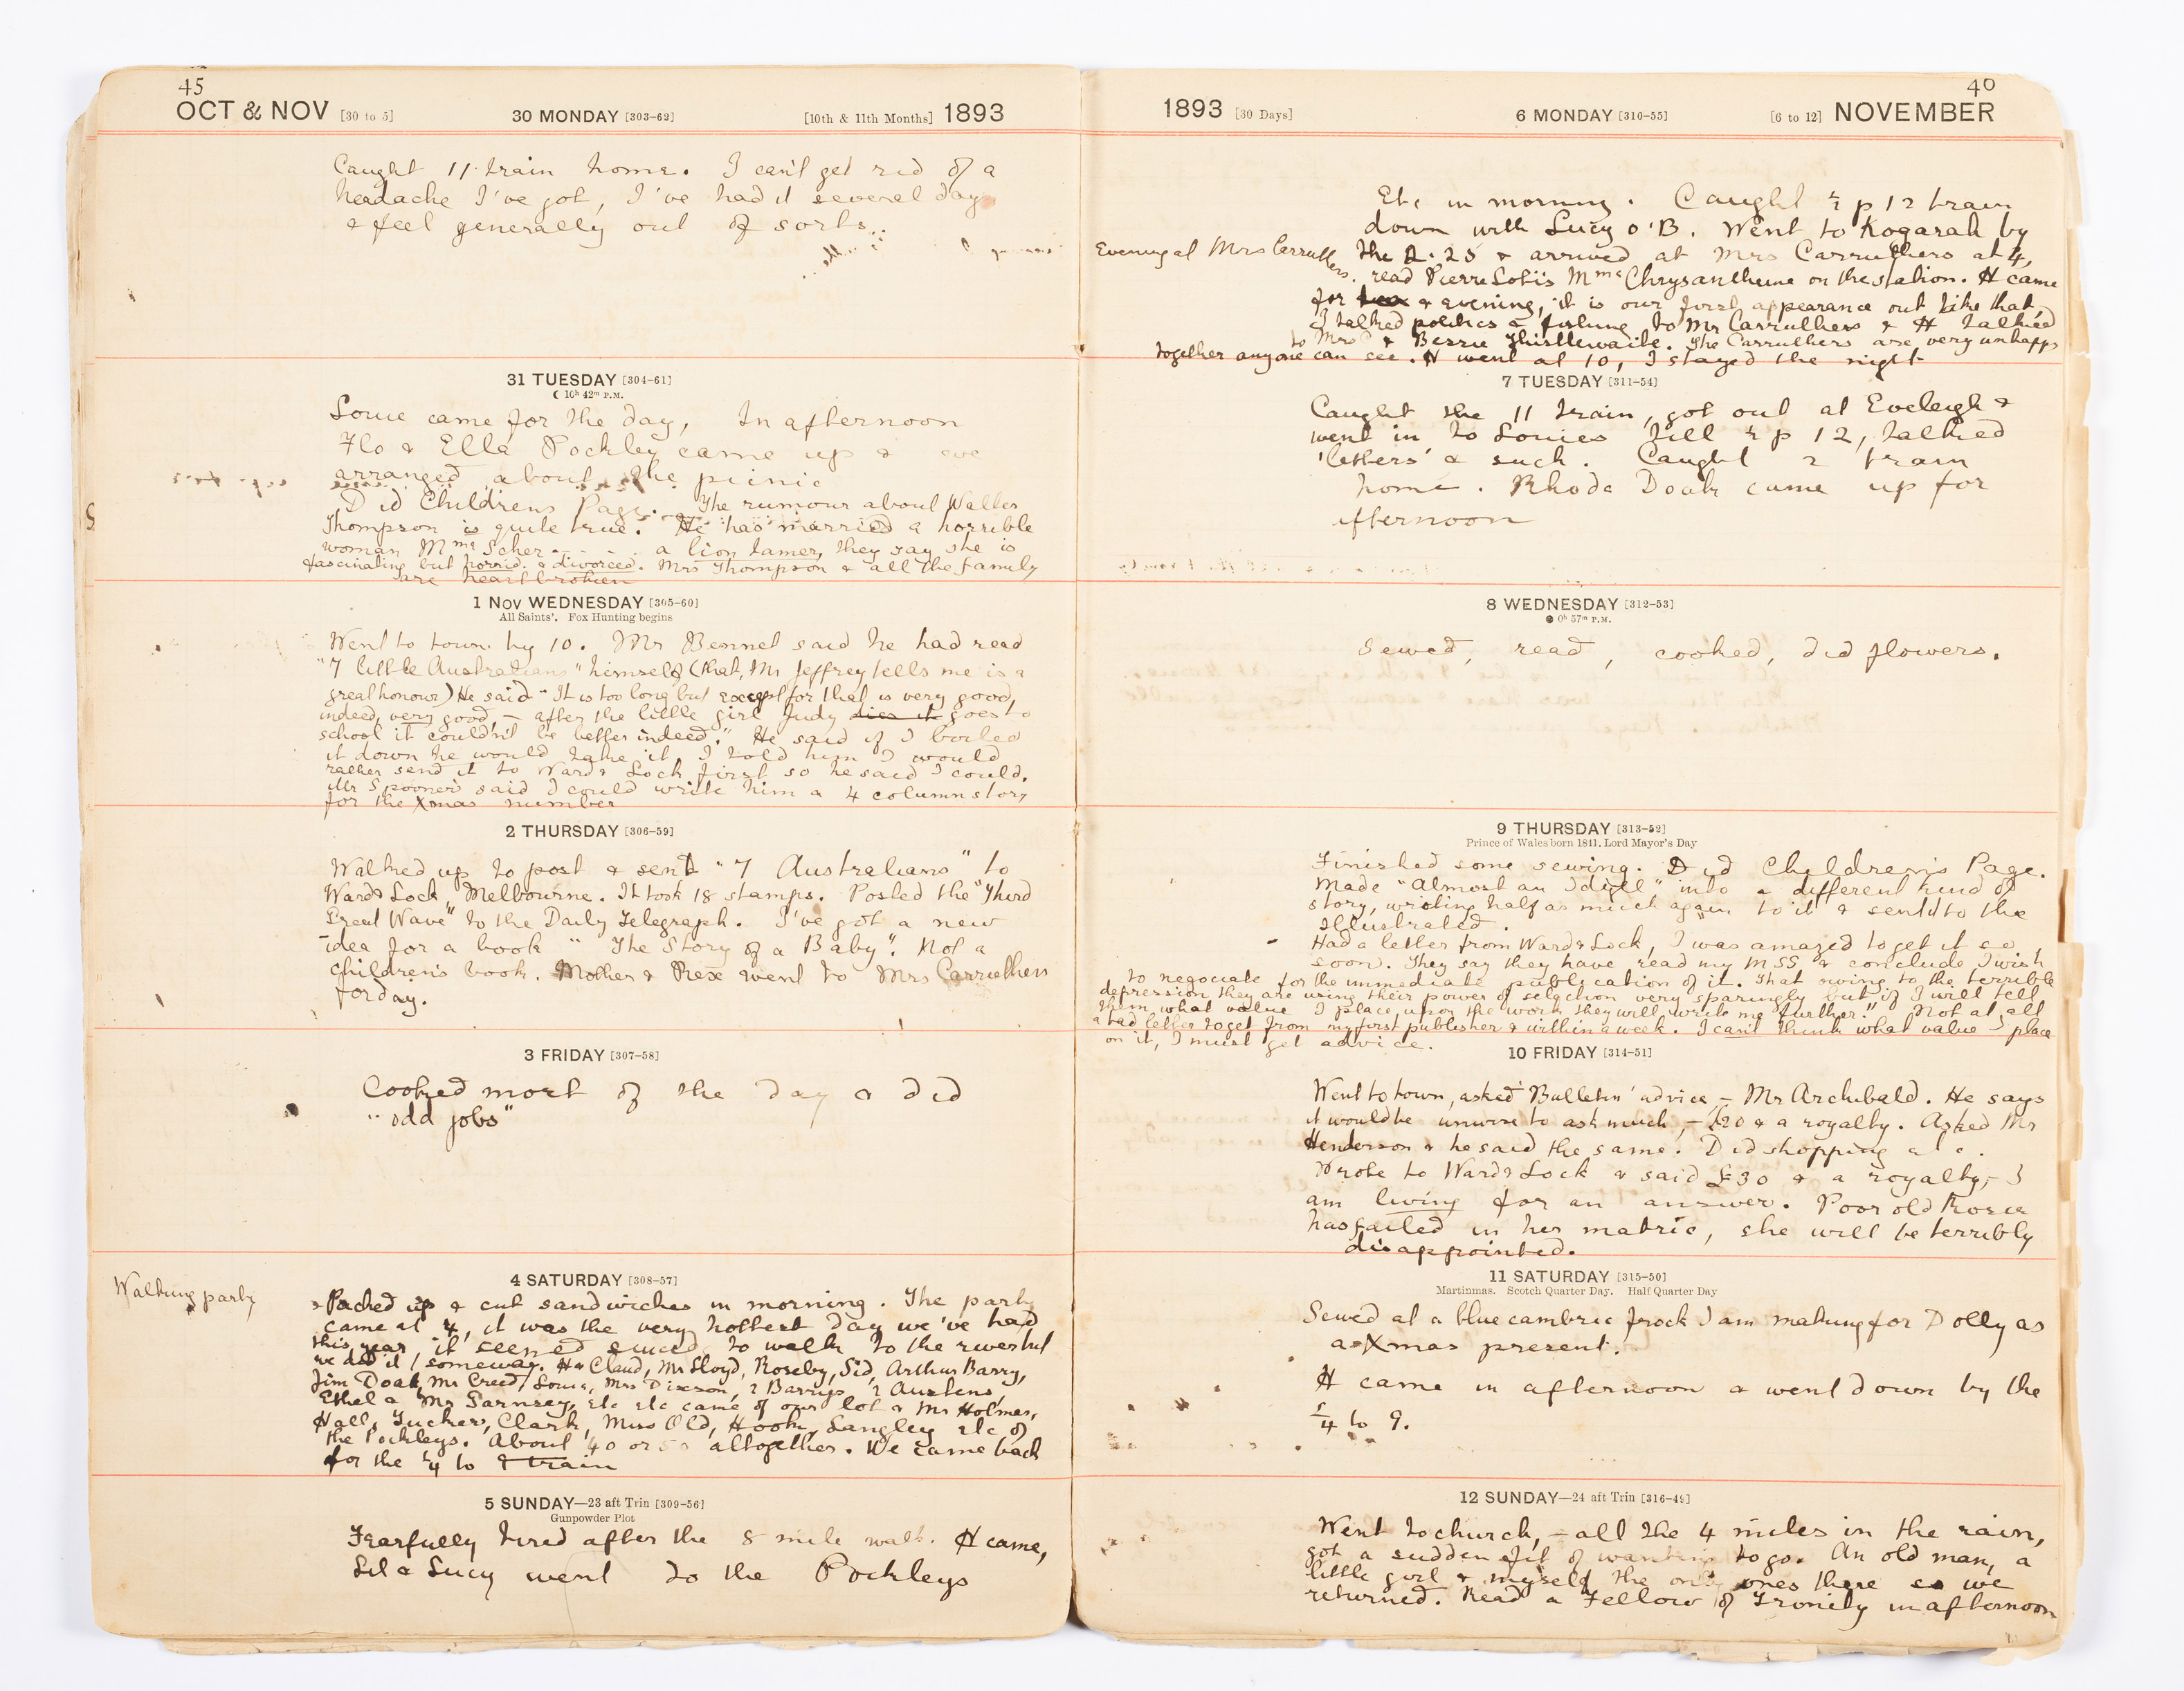 45
OCT & NOV [30 to 5] 30 MONDAY [303-62] [10th & 11th Months] 1893
Caught 11 train home. I can't get rid of a
headache I've got, I've had it several days
& feel generally out of sorts.
31 TUESDAY [304-61]
☾ 10h 42m P.M.
Louie came for the day, In afternoon
Flo & Ella Pockley came up & we
arranged about the picnic
Did Childrens Page. The rumour about Walter
Thompson is quite true. He has married a horrible
woman Mme Scher - - - - a lion tamer, they say she is
fascinating but horrid & divorced. Mrs Thompson & all the family
are heartbroken
1 Nov WEDNESDAY [305-60]
All Saints'. Fox Hunting begins
Went to town by 10. Mr Bennet said he had read
"7 little Australians" himself (that, Mr Jeffrey tells me is a
great honour) He said "It is too long but except for that is very good,
indeed, very good, – after the little girl Judy dies it goes to
school it couldn't be better indeed." He said if I boiled
it down he would take it I told him I would
rather send it to Ward & Lock first so he said I could.
Mr Spooner said I could write him a 4 column story
for the Xmas number
2 THURSDAY [306-59]
Walked up to post & sent "7 Australians" to
Ward & Lock, Melbourne. It took 18 stamps. Posted the "Third
Great Wave" to the Daily Telegraph. I've got a new
idea for a book "The Story of a Baby". Not a
children's book. Mother & Rex went to Mrs Carruthers
for day.
3 FRIDAY [307-58]
Cooked most of the day & did
"odd jobs"
4 SATURDAY [308-57]
Walking party
Packed up & cut sandwiches in morning. The party
came at 4, it was the very hottest day we've had
this year, it seemed to walk to the river but
we did it someway. Claud, Mr Lloyd, Roseby, Sid, Arthur Barry,
Jim Doak, Mr Creed, Louie, Mrs Dixson, 2 Barrys, 2 Austens,
Ethel & Mr Garnsey, etc etc came of our lot & Mr Holmes,
Hall, Tucker, Clark, Miss Old, Hook, Langley etc of
the Pockleys. About 40 or 50 altogether. We came back
for the ¼ to 9 train
5 SUNDAY—23 aft Trin [309-56]
Gunpowder Plot
Fearfully tired after the 8 mile walk. H came,
Lil & Lucy went to the Pockleys
40
1893 [30 Days] 6 MONDAY [310-55] [6 to 12] NOVEMBER
Etc in morning. Caught ½ p 12 train
down with Lucy O'B. Went to Kogarah by
Evening at Mrs Carruthers.
the 2.25 & arrived at Mrs Carruthers at 4,
read Pierre Loti's Mme Chrysantheme on the station. H came
for tea & evening, it is our first appearance out like that,
I talked politics & fortune to Mr Carruthers & H talked
to Mrs & Bessie Thistlewaite. The Carruthers are very unhappy
together anyone can see. H went at 10, I stayed the night
7 TUESDAY [311-54]
Caught the 11 train, got out at Eveleigh &
went in to Louies till ½ p 12, talked
'letters' & such. Caught 2 train
home. Rhoda Doak came up for
afternoon
8 WEDNESDAY [312-53]
● 0h 57m P.M.
Sewed, read, cooked, did flowers.
9 THURSDAY [313-52]
Prince of Wales born 1841. Lord Mayor's Day
Finished some sewing. Did Children's Page.
Made "Almost an Idyll" into a different kind of
story, writing half as much again to it & sent it to the
Illustrated.
Had a letter from Ward & Lock, I was amazed to get it so
soon. They say they have read my MSS & conclude I wish
to negociate for the immediate publication of it. That owing to the terrible
depression they are using their power of selection very sparingly but if I will tell
them what value I place upon the work they will write me further." Not at all
a bad letter to get from my first publisher & within a week. I can't think what value I place
on it, I must get advice.
10 FRIDAY [314-51]
Went to town, asked 'Bulletin' advice – Mr Archibald. He says
it would be unwise to ask much, – £20 & a royalty. Asked Mr
Henderson & he said the same. Did shopping
Wrote to Ward & Lock & said £30 & a royalty, – I
am living for an answer. Poor old Rosie
has failed in her matric, she will be terribly
disappointed.
11 SATURDAY [315-50]
Martinmas. Scotch Quarter Day. Half Quarter Day
Sewed at a blue cambric frock I am making for Dolly as
a Xmas present.
H came in afternoon & went down by the
¼ to 9.
12 SUNDAY—24 aft Trin [316-49]
Went to church, – all the 4 miles in the rain,
got a sudden fit of wanting to go. An old man, a
little girl & myself the only ones there so we
returned. Read a Fellow of Trinity in afternoon